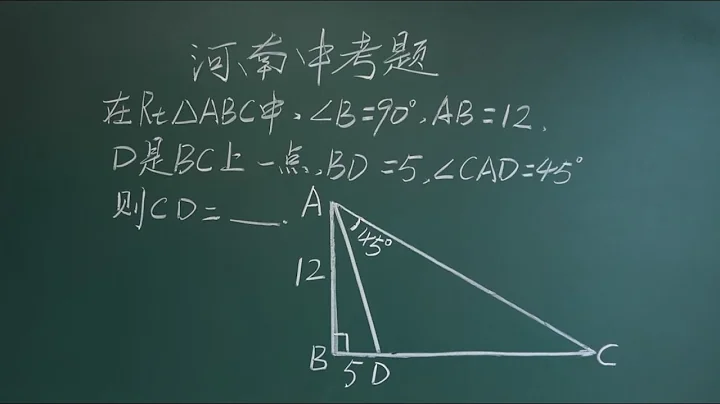 河南中考题
在Rt△ABC中,∠B=90°,AB=12,
D是BC上一点,BD=5,∠CAD=45°
则CD=___.
A
45°
12
B
5
D
C